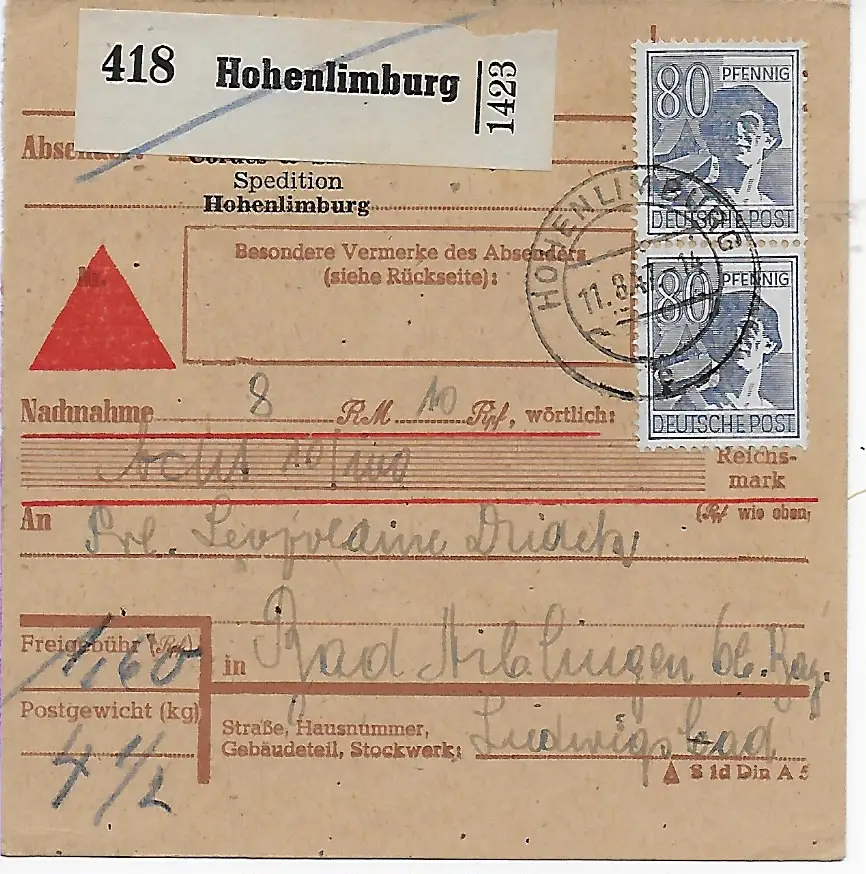 418 Hohenlimburg 1423
80 PFENNIG
DEUTSCHE POST
80 PFENNIG
DEUTSCHE POST
HOHENLIMBURG
11.8.47.-14
Absender:
Spedition
Hohenlimburg
Besondere Vermerke des Absenders
(siehe Rückseite):
Nr.
Nachnahme 8 RM 10 Rpf, wörtlich:
Acht 10/100
Reichs-
mark
(Rpf wie oben)
An
Frl. Leopoldine
Freigebühr (Rpf)
1,60
in Bad Aiblingen
Postgewicht (kg)
4 1/2
Straße, Hausnummer,
Gebäudeteil, Stockwerk: Ludwigsbad
S 1d Din A 5